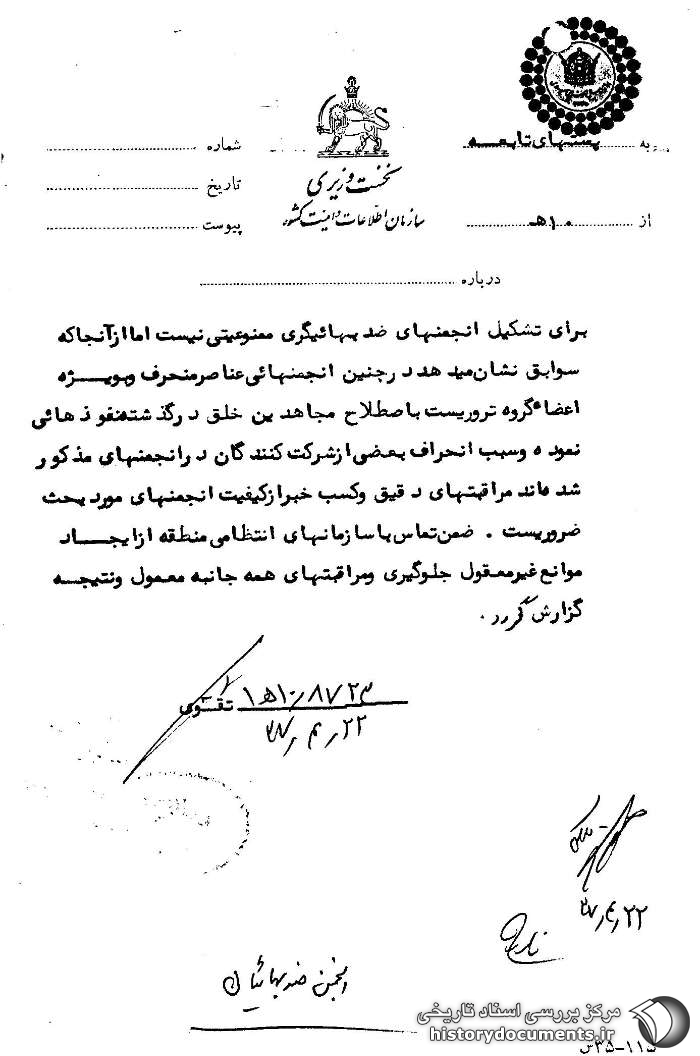 به بخشهای تابعه
نخست وزیری
سازمان اطلاعات و امنیت کشور
شماره
تاریخ
پیوست
از ۱۰ هـ
درباره
برای تشکیل انجمنهای ضد بهائیگری ممنوعیتی نیست اما از آنجا که
سوابق نشان میدهد در چنین انجمنهائی عناصر منحرف وبویژه
اعضاء گروه تروریست باصطلاح مجاهدین خلق در گذشته نفوذهائی
نموده وسبب انحراف بعضی از شرکت کنندگان در انجمنهای مذکور
شده‌اند مراقبتهای دقیق وکسب خبر از کیفیت انجمنهای مورد بحث
ضروریست . ضمن تماس با سازمانهای انتظامی منطقه از ایجاد
موانع غیرمعقول جلوگیری ومراقبتهای همه جانبه معمول ونتیجه
گزارش گردد .
تقوی
۲۲
۲۲
انجمن ضد بهائیان
مرکز بررسی اسناد تاریخی
historydocuments.ir
۱۱۵-۳۵س